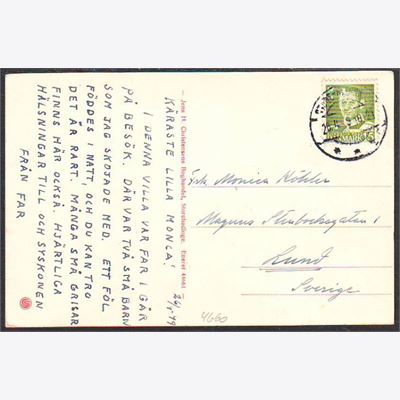 26/5 49
KÄRASTE LILLA MONCA!
I DENNA VILLA VAR FAR I GÅR
PÅ BESÖK. DÄR VAR TVÅ SMÅ BARN
SOM JAG SKOJADE MED. ETT FÖL
FÖDDES I NATT, OCH DU KAN TRO
DET ÄR RART. MÅNGA SMÅ GRISAR
FINNS HÄR OCKSÅ. HJÄRTLIGA
HÄLSNINGAR TILL OCH SYSKONEN
FRÅN FAR
— Jens H. Christensens Boghandel, Storehedinge. Eneret
DANMARK
Frk. Monica Köhler
Magnus Stenbocksgatan 1
Lund
Sverige
4660